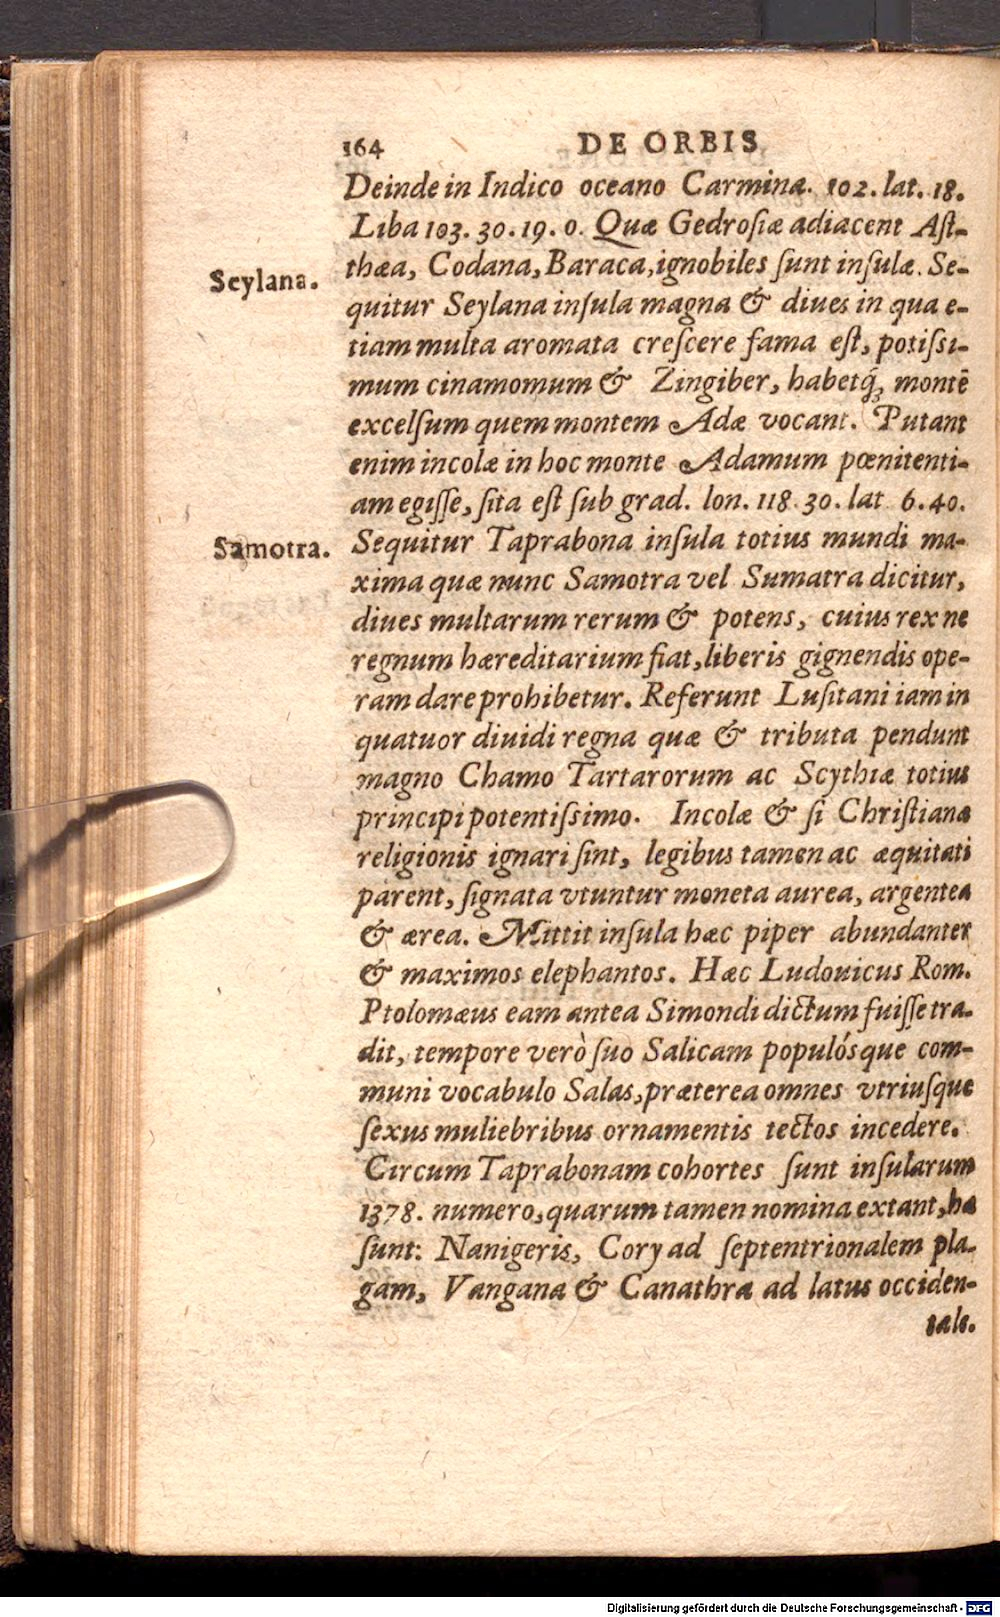 164 DE ORBIS
Deinde in Indico oceano Carminæ. 102. lat. 18.
Liba 103. 30. 19. 0. Quæ Gedrosiæ adiacent Ast-
thæa, Codana, Baraca, ignobiles sunt insulæ. Se-
Seylana.
quitur Seylana insula magna & diues in qua e-
tiam multa aromata crescere fama est, potissi-
mum cinamomum & Zingiber, habetq́; montē
excelsum quem montem Adæ vocant. Putant
enim incolæ in hoc monte Adamum pœnitenti-
am egisse, sita est sub grad. lon. 118. 30. lat 6. 40.
Samotra.
Sequitur Taprabona insula totius mundi ma-
xima quæ nunc Samotra vel Sumatra dicitur,
diues multarum rerum & potens, cuius rex ne
regnum hæreditarium fiat, liberis gignendis ope-
ram dare prohibetur. Referunt Lusitani iam in
quatuor diuidi regna quæ & tributa pendunt
magno Chamo Tartarorum ac Scythiæ totius
principi potentissimo. Incolæ & si Christianæ
religionis ignari sint, legibus tamen ac æquitati
parent, signata vtuntur moneta aurea, argentea
& ærea. Mittit insula hæc piper abundanter
& maximos elephantos. Hæc Ludouicus Rom.
Ptolomæus eam antea Simondi dictum fuisse tra-
dit, tempore verò suo Salicam populósque com-
muni vocabulo Salas, præterea omnes vtriusque
sexus muliebribus ornamentis tectos incedere.
Circum Taprabonam cohortes sunt insularum
1378. numero, quarum tamen nomina extant, hæ
sunt: Nanigeris, Cory ad septentrionalem pla-
gam, Vangana & Canathra ad latus occiden-
tale.
Digitalisierung gefördert durch die Deutsche Forschungsgemeinschaft - DFG